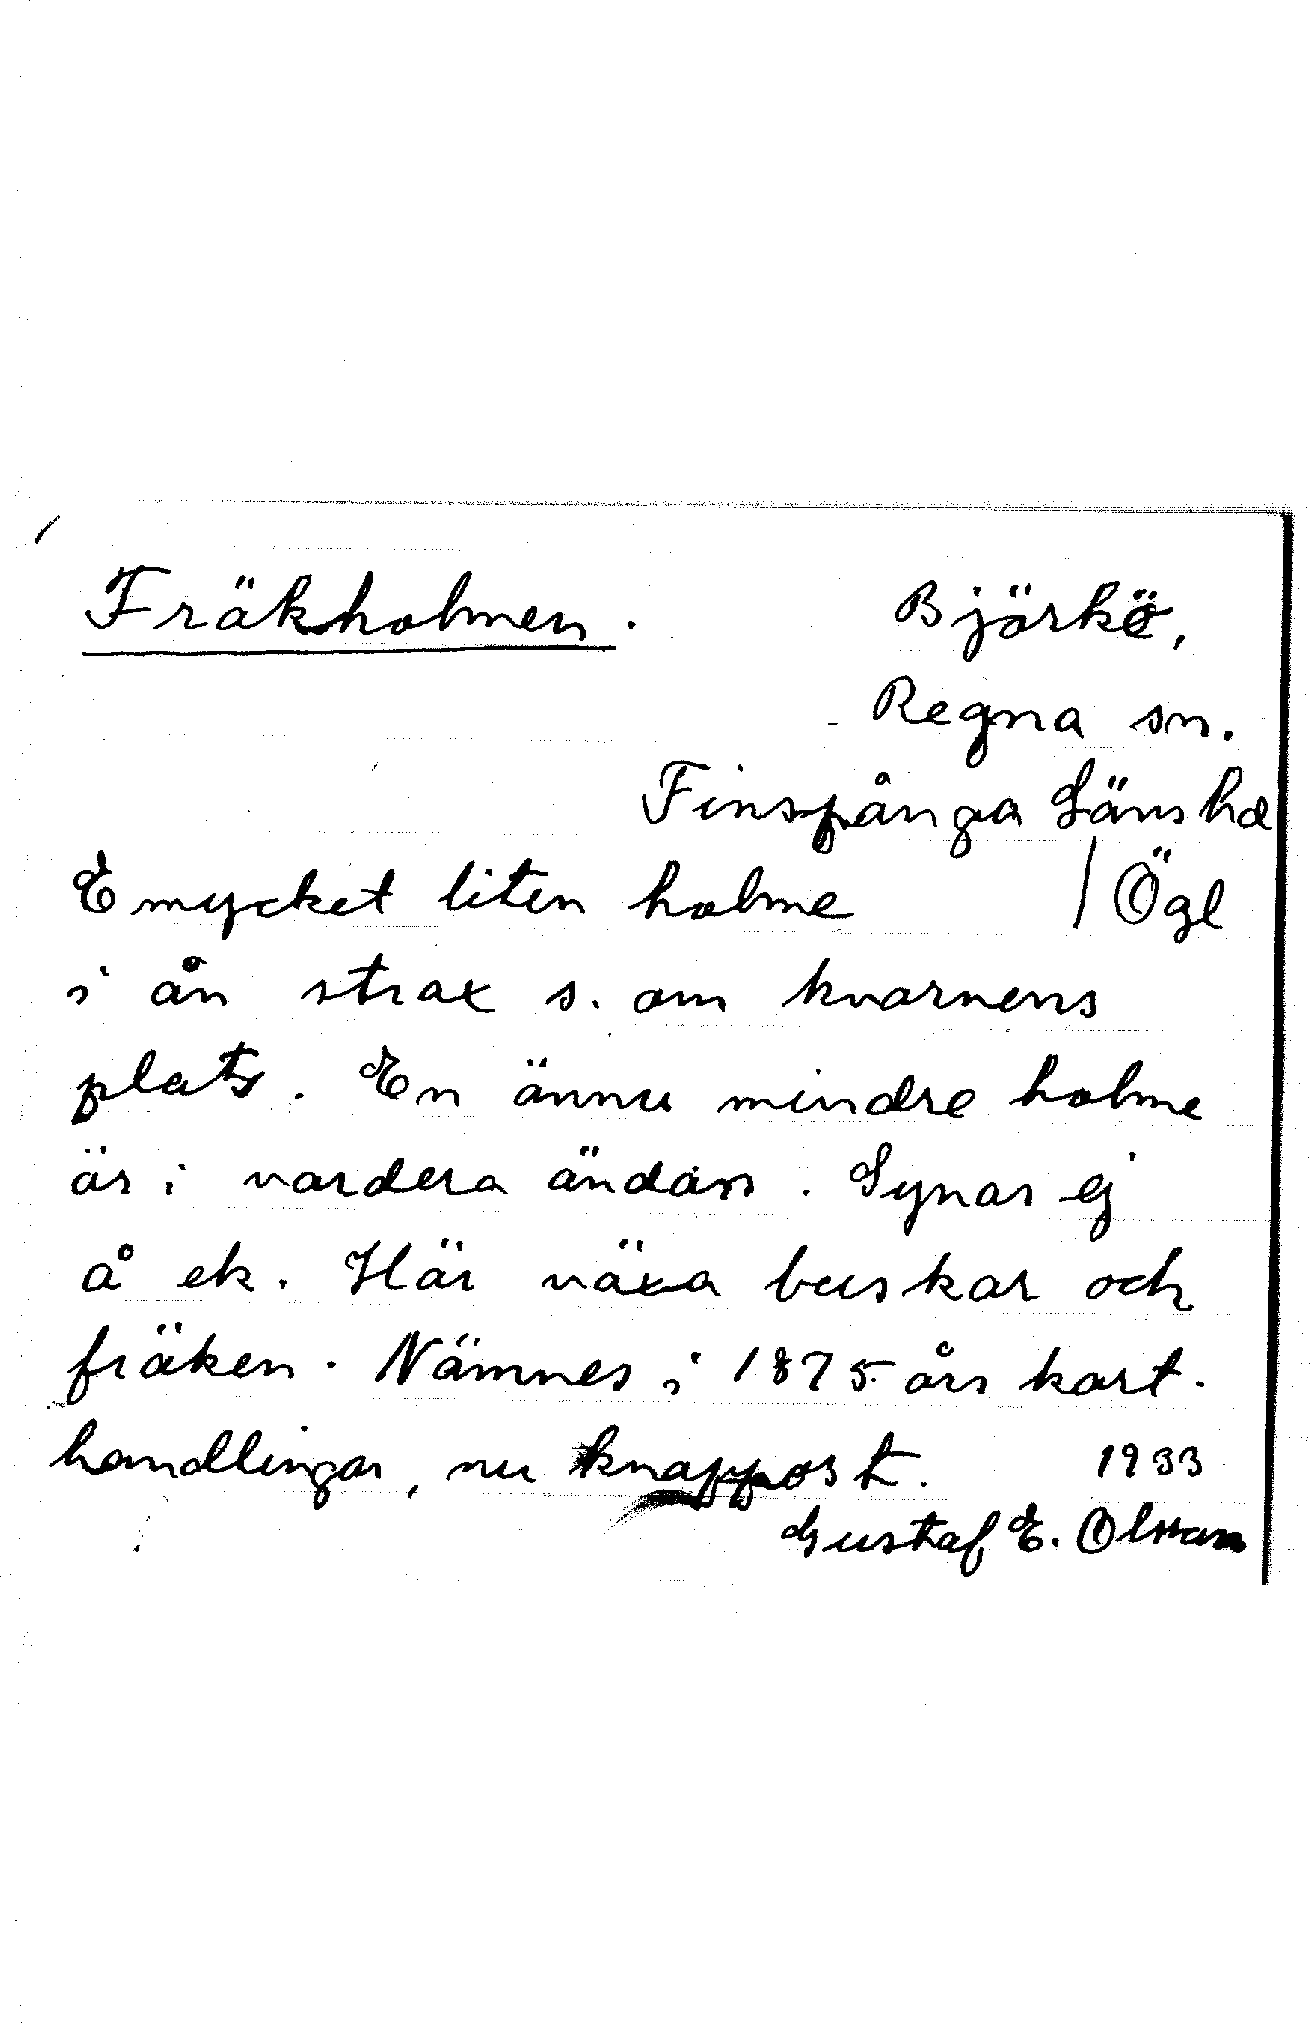 Fräkholmen.
Björkö,
Regna sn.
Finspånga Läns hd
E mycket liten holme / Ögl
i ån strax s. om kvarnens
plats. En ännu mindre holme
är i vardera ändan. Synas ej
å ek. Här växa buskar och
fräken. Nämnes i 1875 års kart-
handlingar, nu knappost. 1933
Gustaf E. Olsson